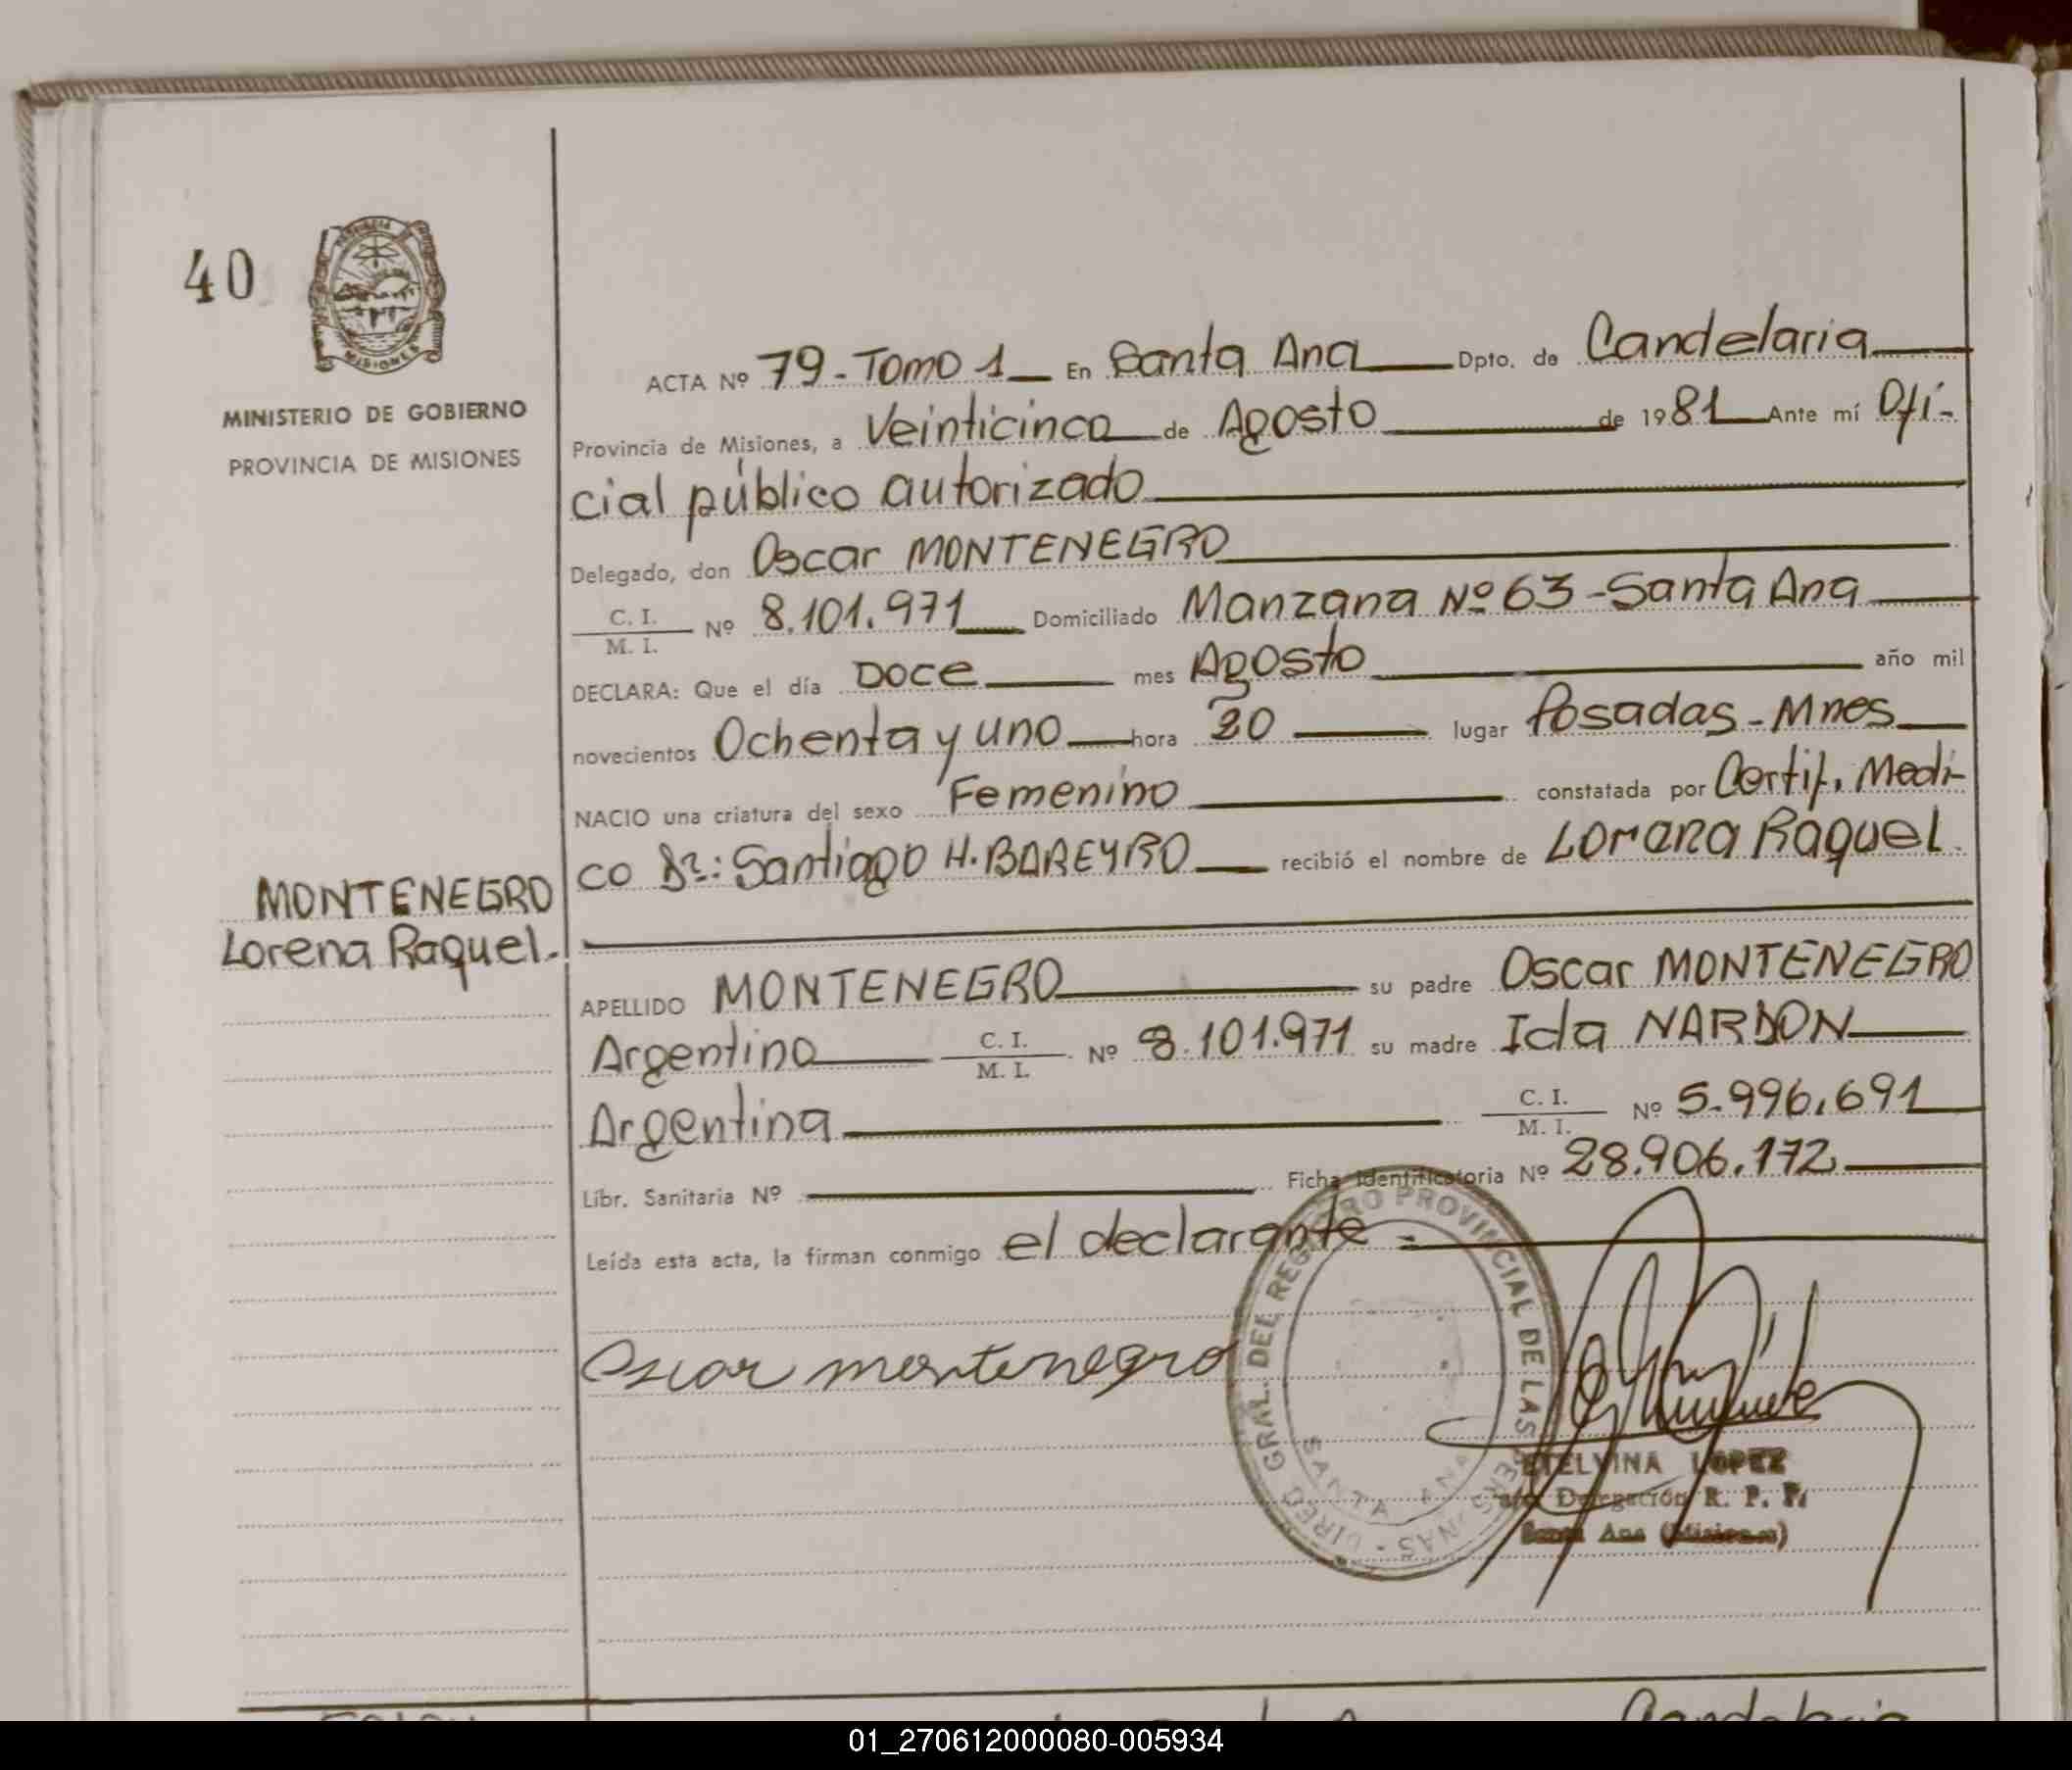 40
MISIONES
MINISTERIO DE GOBIERNO
PROVINCIA DE MISIONES
ACTA Nº 79 - Tomo 1 En Santa Ana Dpto. de Candelaria
Provincia de Misiones, a Veinticinco de Agosto de 1981 Ante mí Ofi-
cial público autorizado
Delegado, don Oscar MONTENEGRO
C. I.
M. I. Nº 8.101.971 Domiciliado Manzana Nº 63 - Santa Ana
DECLARA: Que el día Doce mes Agosto año mil
novecientos Ochenta y uno hora 20 lugar Posadas - Mnes
NACIO una criatura del sexo Femenino constatada por Certif. Medi-
co Dr.: Santiago H. BAREYRO recibió el nombre de Lorena Raquel.
MONTENEGRO
Lorena Raquel.
APELLIDO MONTENEGRO su padre Oscar MONTENEGRO
Argentino C. I. M. I. Nº 8.101.971 su madre Ida NARDON
Argentina C. I. M. I. Nº 5.996.691
Libr. Sanitaria Nº Ficha Identificatoria Nº 28.906.172
Leída esta acta, la firman conmigo el declarante =
Oscar montenegro
DIREC. GRAL. DEL REGISTRO PROVINCIAL DE LAS PERSONAS -
SANTA ANA
ETELVINA LOPEZ
Delegación R. P. P.
Santa Ana (Misiones)
Candelaria
01_270612000080-005934